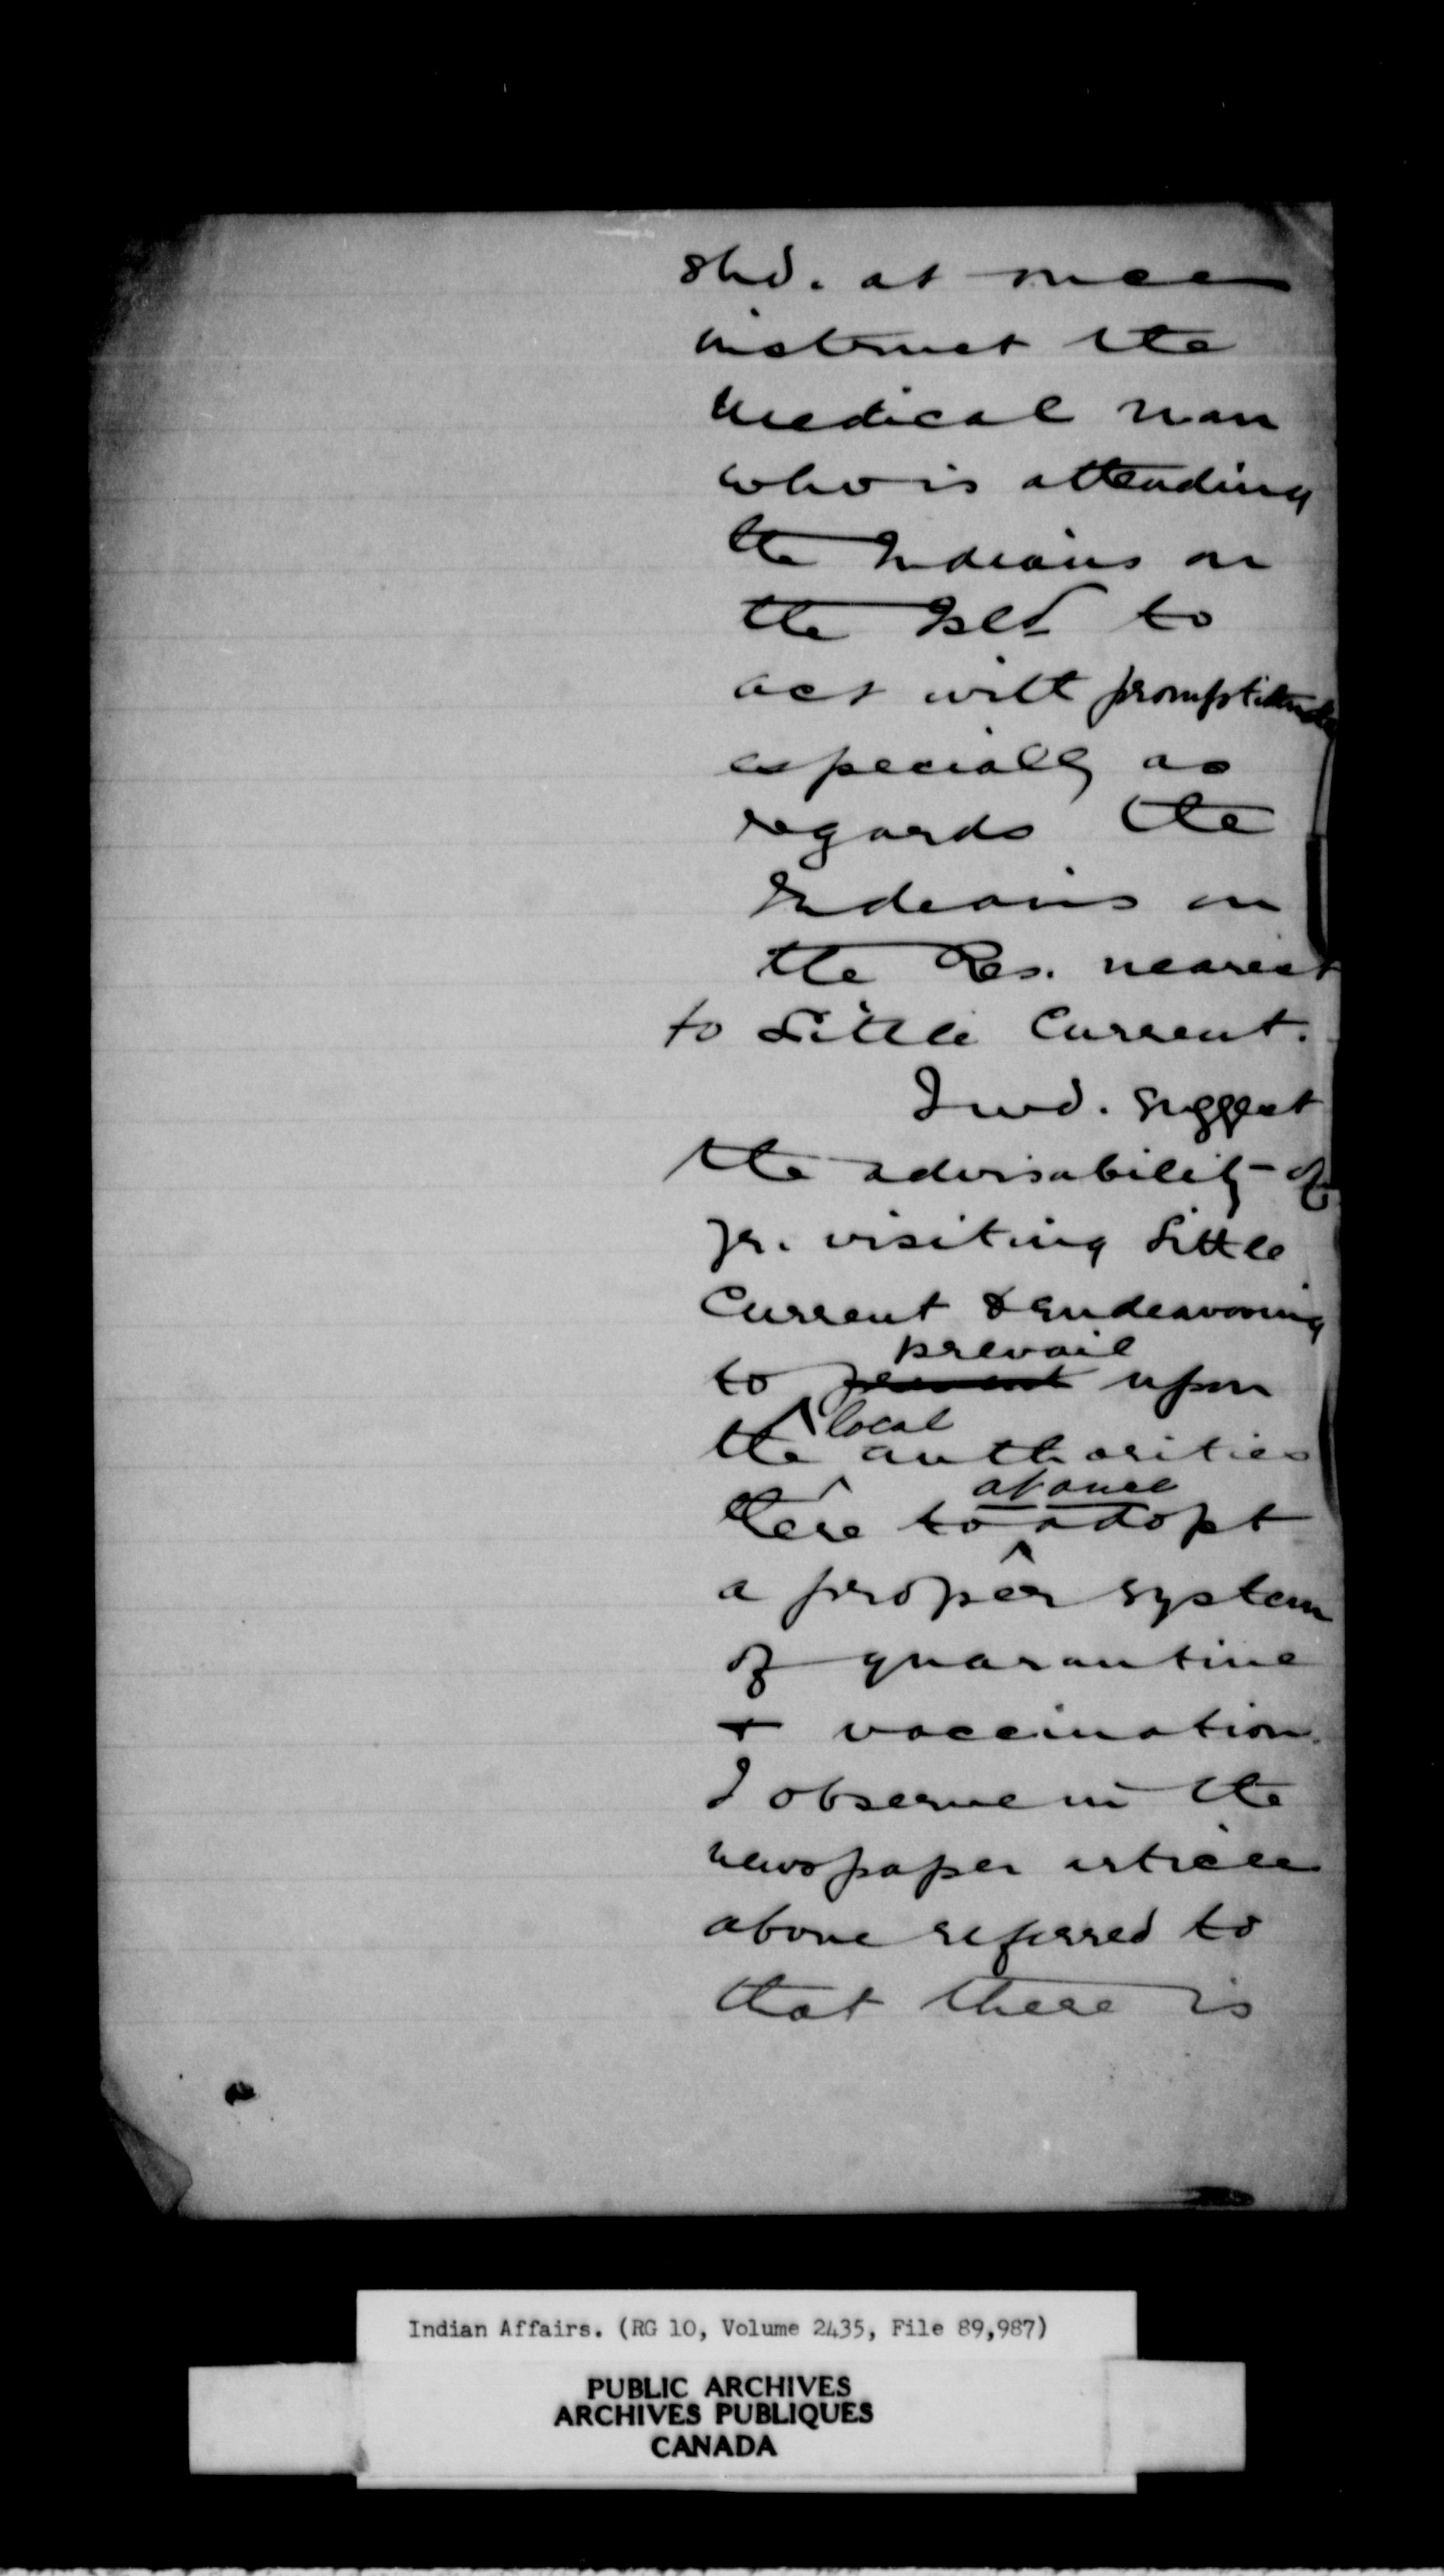 shd. at once
instruct the
medical man
who is attending
the Indians on
the Isld to
act with promptitude
especially as
regards the
Indians on
the Res. nearest
to Little Current.
I wd. suggest
the advisability of
yr. visiting Little
Current & endeavoring
prevail
to upon
local
the authorities
at once
there to adopt
a proper system
of quarantine
+ vaccination.
I observe in the
newspaper article
above referred to
that there is
Indian Affairs. (RG 10, Volume 2435, File 89,987)
PUBLIC ARCHIVES
ARCHIVES PUBLIQUES
CANADA